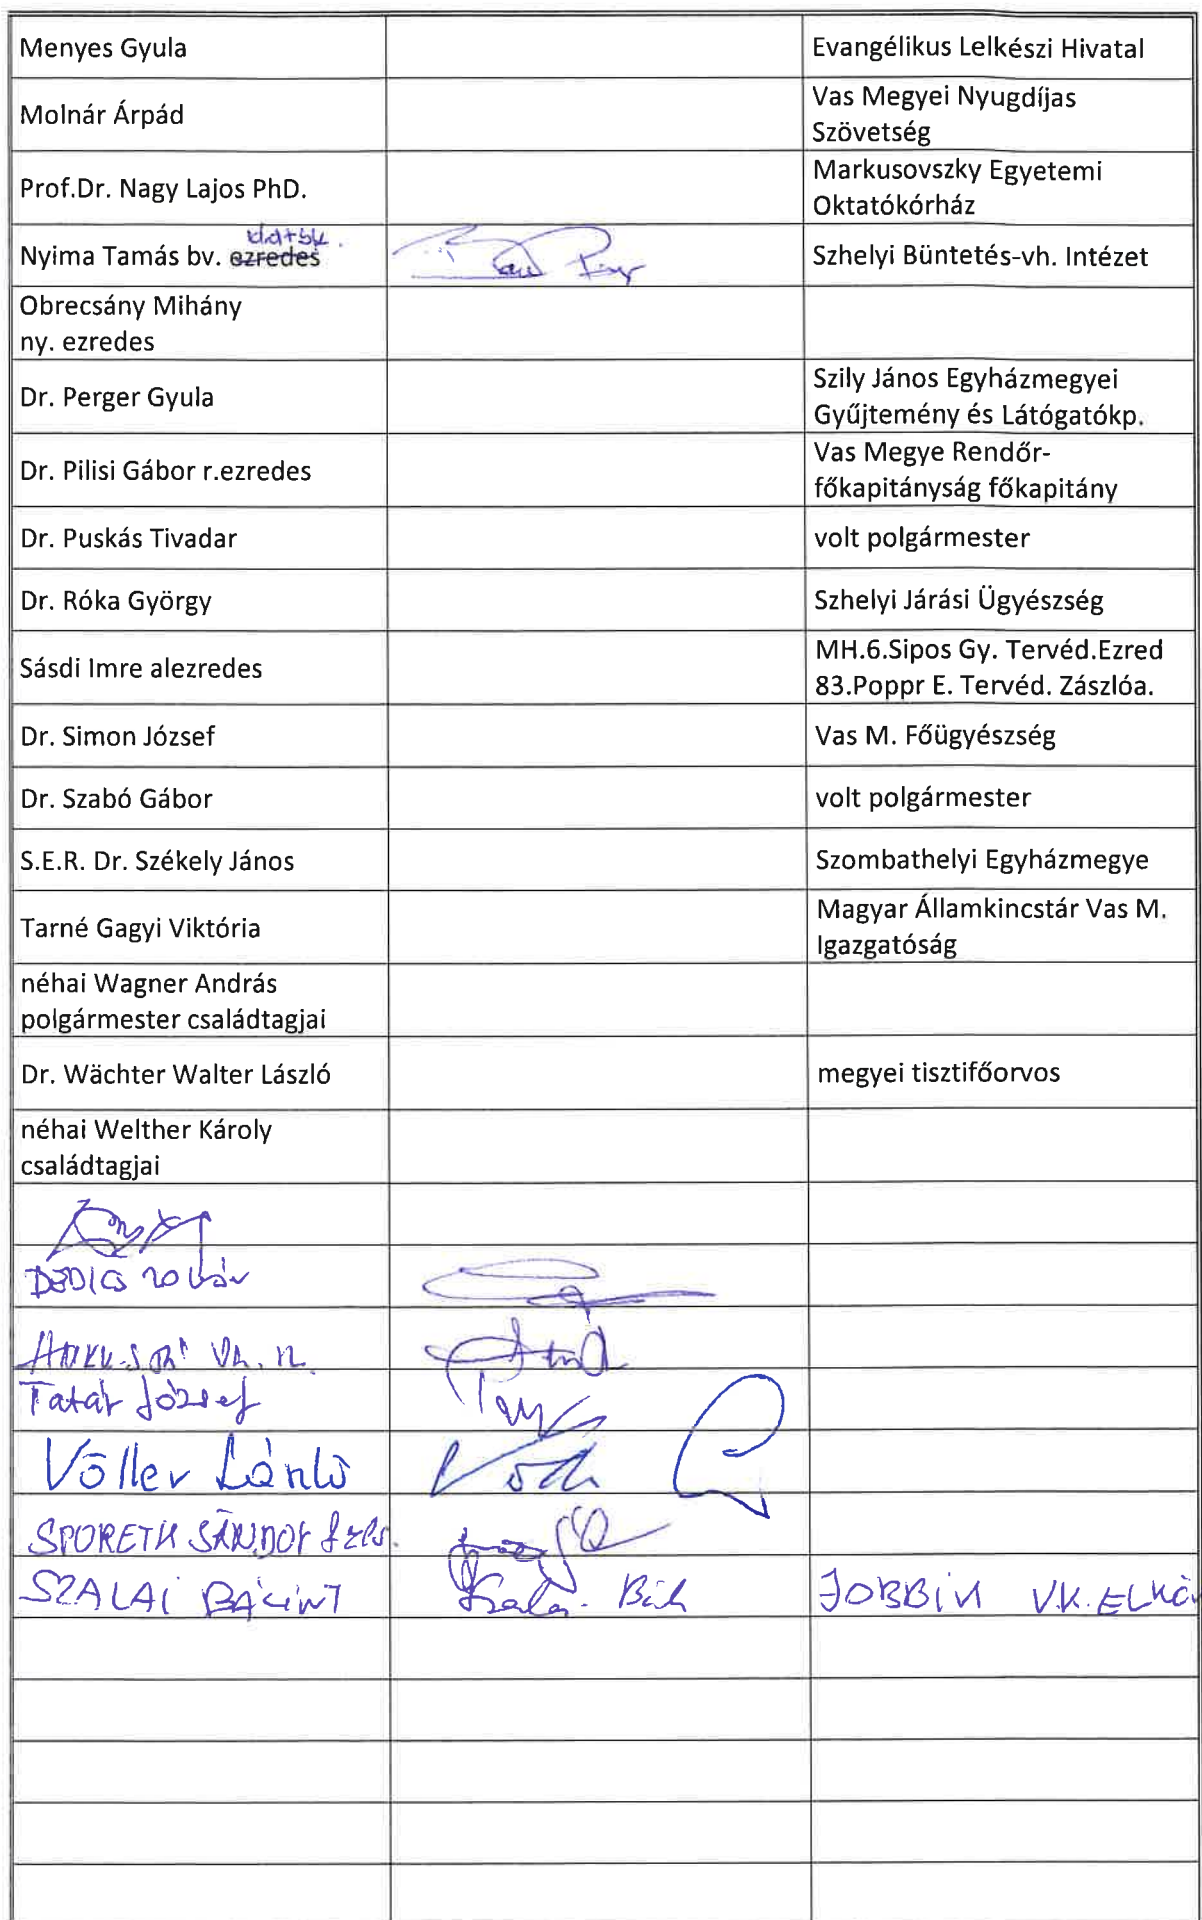 Menyes Gyula Evangélikus Lelkészi Hivatal
Molnár Árpád Vas Megyei Nyugdíjas
Szövetség
Prof.Dr. Nagy Lajos PhD. Markusovszky Egyetemi
Oktatókórház
Nyima Tamás bv. ezredes Szhelyi Büntetés-vh. Intézet
Obrecsány Mihány
ny. ezredes
Dr. Perger Gyula Szily János Egyházmegyei
Gyűjtemény és Látógatókp.
Dr. Pilisi Gábor r.ezredes Vas Megye Rendőr-
főkapitányság főkapitány
Dr. Puskás Tivadar volt polgármester
Dr. Róka György Szhelyi Járási Ügyészség
Sásdi Imre alezredes MH.6.Sipos Gy. Tervéd.Ezred
83.Poppr E. Tervéd. Zászlóa.
Dr. Simon József Vas M. Főügyészség
Dr. Szabó Gábor volt polgármester
S.E.R. Dr. Székely János Szombathelyi Egyházmegye
Tarné Gagyi Viktória Magyar Államkincstár Vas M.
Igazgatóság
néhai Wagner András
polgármester családtagjai
Dr. Wächter Walter László megyei tisztifőorvos
néhai Welther Károly
családtagjai
Tatár József
Völler László
SPORETH SÁNDOR
SZALAI BÁLINT JOBBIK V.K. ELNÖK